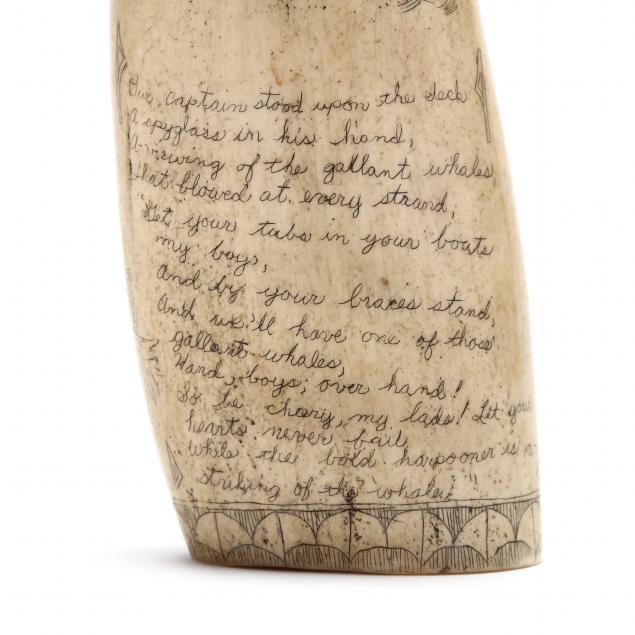 Our captain stood upon the deck
a spyglass in his hand,
A-viewing of the gallant whales,
that blowed at every strand,
"Get your tubs in your boats
my boys,
and by your braces stand,
And we'll have one of those
gallant whales,
Hand, boys; over hand!
So be cheery, my lads! Let your
hearts never fail,
while the bold harpooner is a-
striking of the whale!"